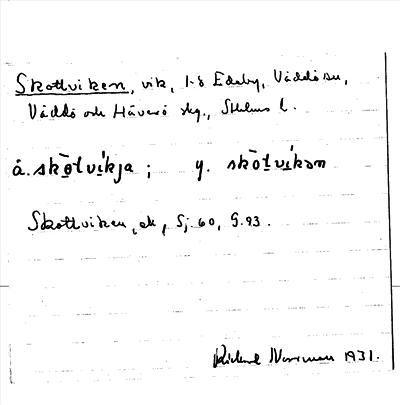 Skottviken, vik, 1-8 Edeby, Väddö sn,
Väddö och Häverö skg., Sthlms l.
å. skòtvikja ; y. skòtvikən
Skottviken, ek, Sj. 60, G. 93.
Rickard Norrman 1931.